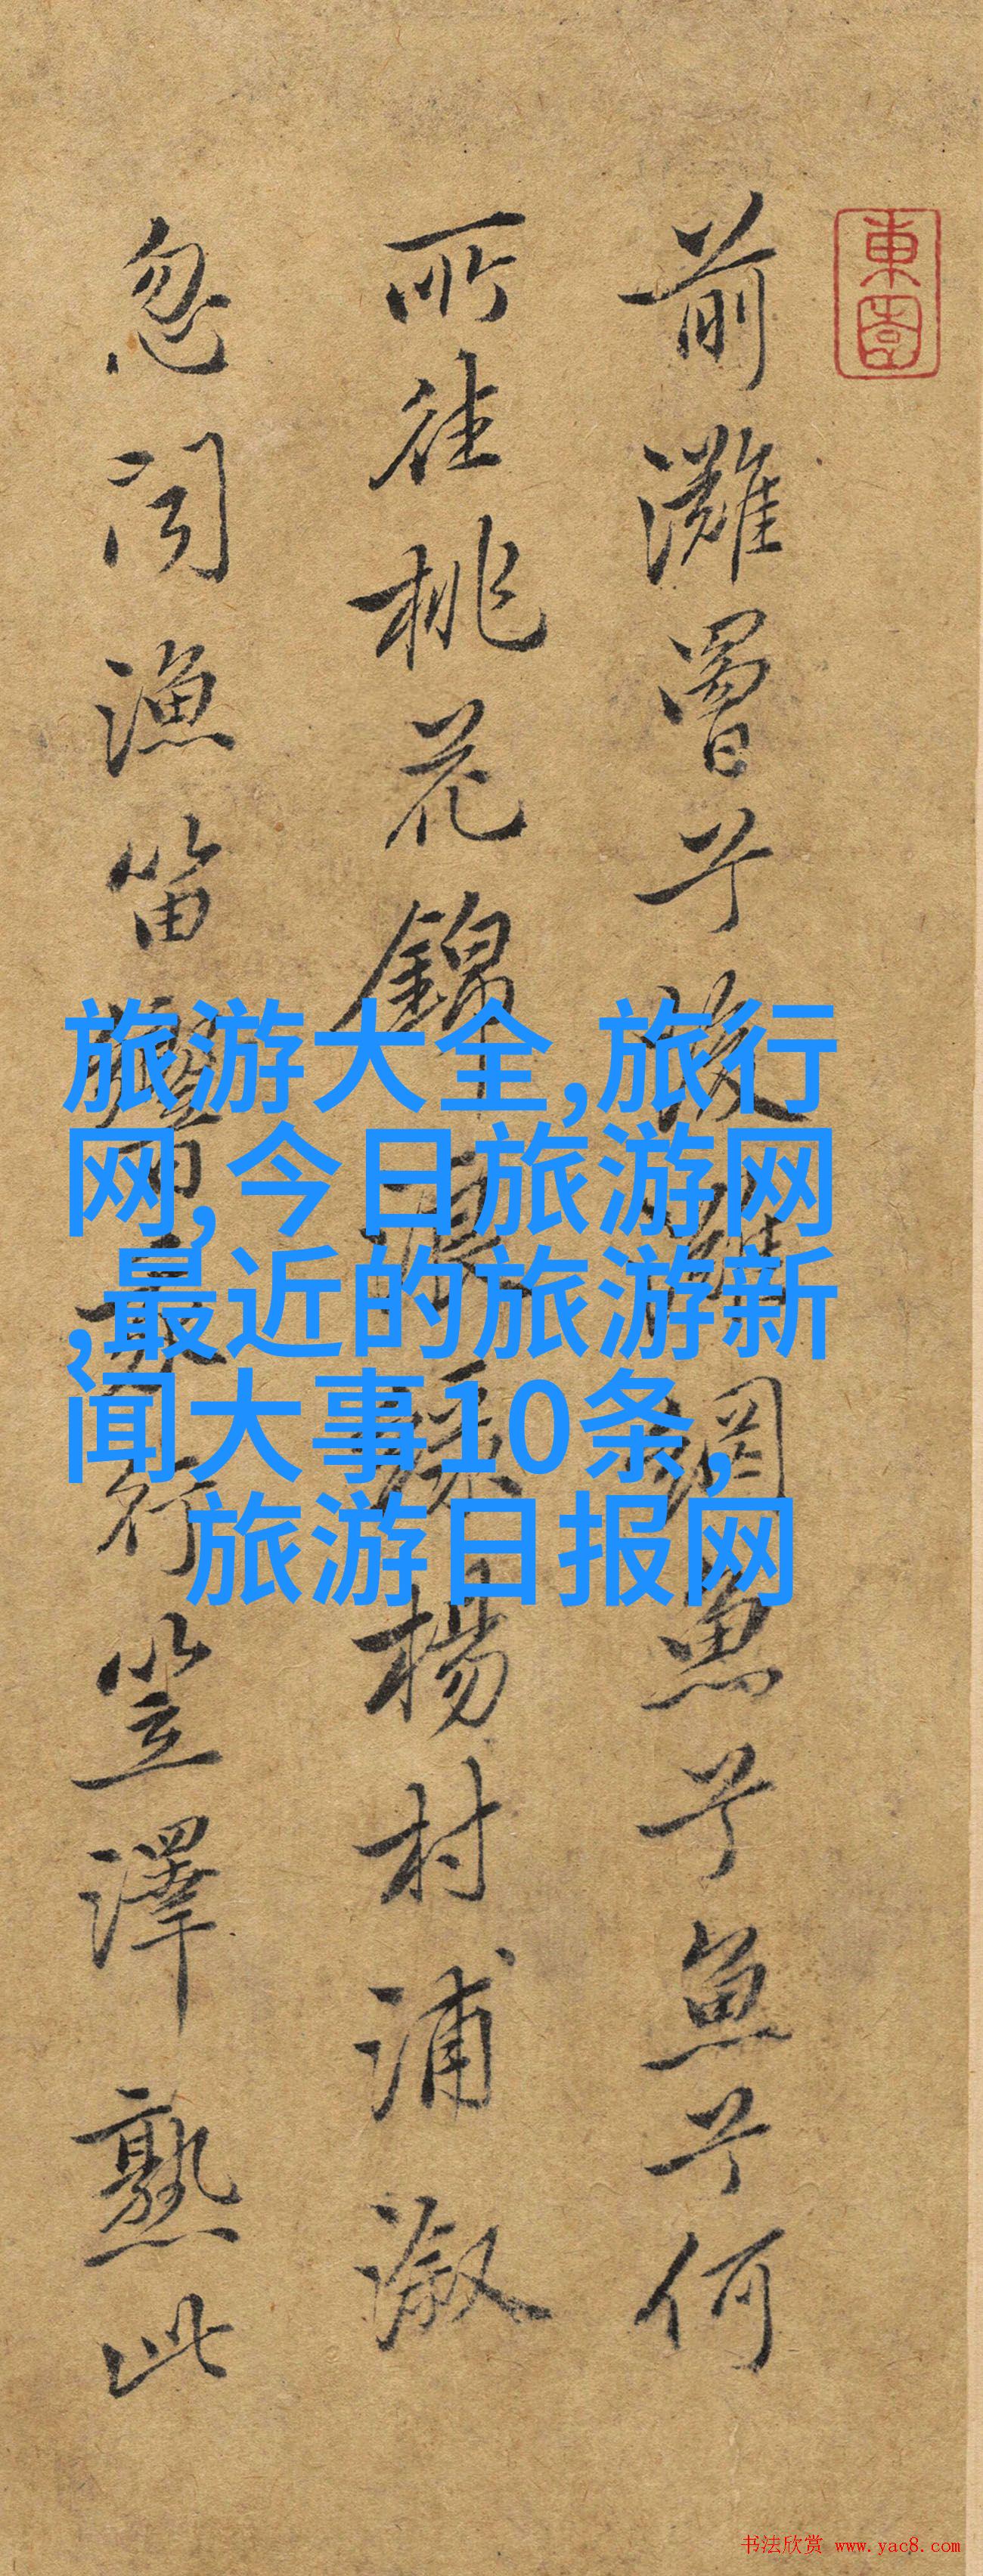 東園
前灘罾兮後灘網魚兮魚兮何
所往桃花錦浪綠楊村浦溆
忽聞漁笛行笠澤熟此
旅游大全,旅行
网,今日旅游网
,最近的旅游新
闻大事10条,
旅游日报网
书法欣赏 www.yac8.com